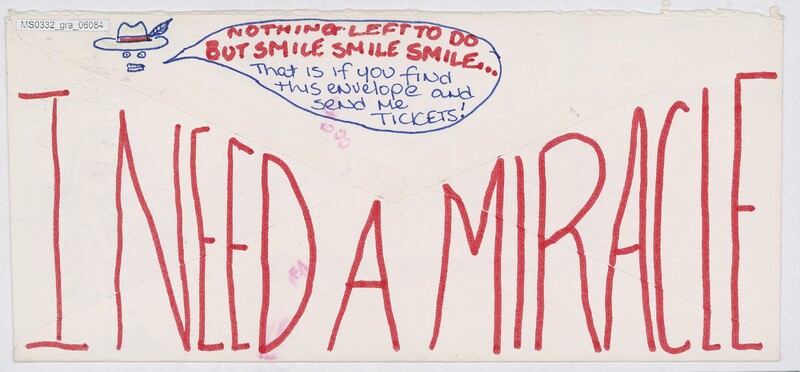 MS0332_gra_06084
NOTHING LEFT TO DO
BUT SMILE SMILE SMILE...
That is if you find
this envelope and
send me
TICKETS!
I NEED A MIRACLE